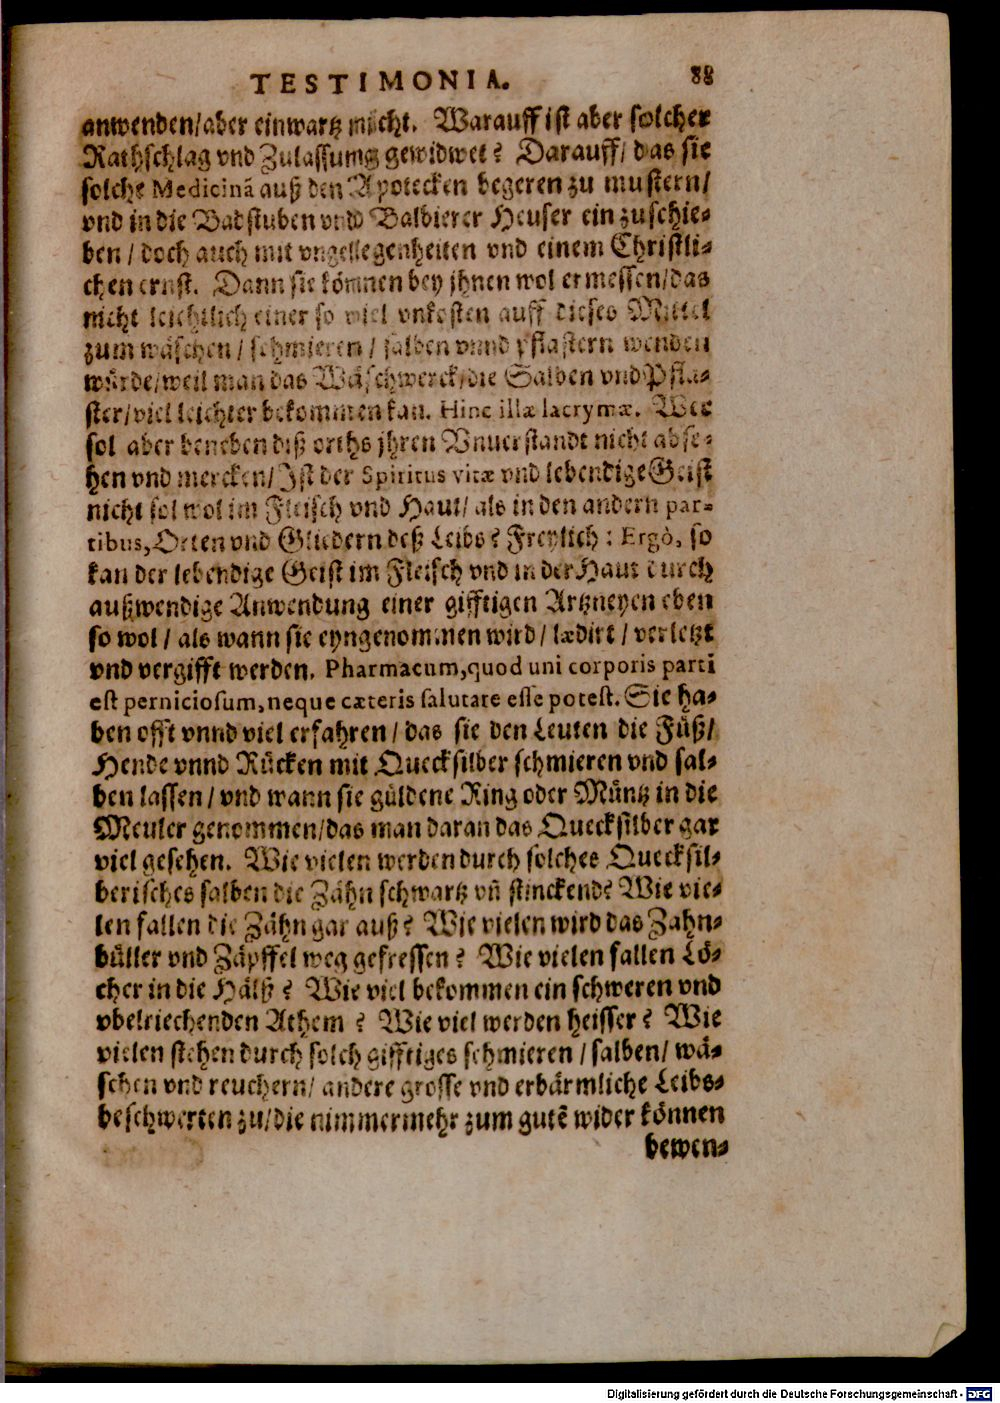 TESTIMONIA. 88
anwenden/aber einwartz nicht. Warauff ist aber solcher
Rathschlag vnd Zulassung gewidwet? Darauff/ das sie
solche Medicinã auß den Apotecken begeren zu mustern/
vnd in die Badstuben vnd Balbierer Heuser ein zuschie-
ben / doch auch mit vngellegenheiten vnd einem Christli-
chen ernst. Dann sie können bey jhnen wol ermessen/das
nicht leichtlich einer so viel vnkosten auff dieses Mittel
zum wäschen / schmieren / salben vnnd pflastern wenden
würde/weil man das Wäschwerck/die Salben vnd Pfla-
ster/viel leichter bekommen kan. Hinc illæ lacrymæ. Wer
sol aber beneben diß orths jhren Vnuerstandt nicht abse-
hen vnd mercken/Ist der Spiritus vitæ vnd lebendige Geist
nicht sol wol im Fleisch vnd Haut/ als in den andern par-
tibus, Orten vnd Gliedern deß Leibs? Freylich: Ergò, so
kan der lebendige Geist im Fleisch vnd in der Haut durch
außwendige Anwendung einer gifftigen Artzneyen eben
so wol / als wann sie eyngenommen wird/ lædirt / verletzt
vnd vergifft werden. Pharmacum, quod uni corporis parti
est perniciosum, neque cæteris salutare esse potest. Sie ha-
ben offt vnnd viel erfahren / das sie den Leuten die Füß/
Hende vnnd Rücken mit Quecksilber schmieren vnd sal-
ben lassen / vnd wann sie güldene Ring oder Müntz in die
Meuler genommen/das man daran das Quecksilber gar
viel gesehen. Wie vielen werden durch solches Quecksil-
berisches salben die Zähn schwartz vñ stinckend? Wie vie-
len fallen die Zähn gar auß? Wie vielen wird das Zahn-
büller vnd Zäpffel weg gefressen? Wie vielen fallen Lö-
cher in die Hälß? Wie viel bekommen ein schweren vnd
vbelriechenden Athem? Wie viel werden heisser? Wie
vielen stehen durch solch gifftiges schmieren / salben/ wä-
schen vnd reuchern/ andere grosse vnd erbärmliche Leibs-
beschwerten zu/die nimmermehr zum gutẽ wider können
bewen-
Digitalisierung gefördert durch die Deutsche Forschungsgemeinschaft - DFG